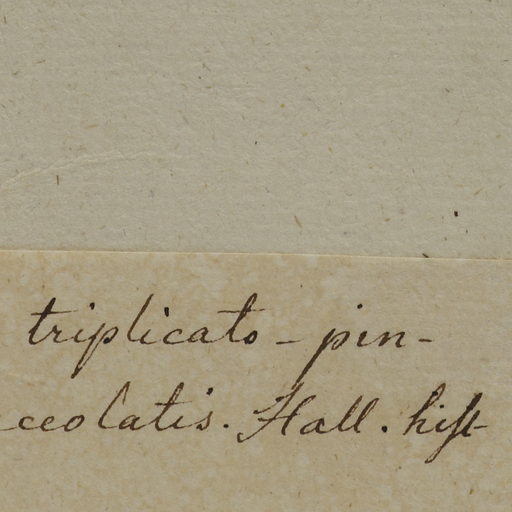 triplicato-pin-
ceolatis. Hall. hist